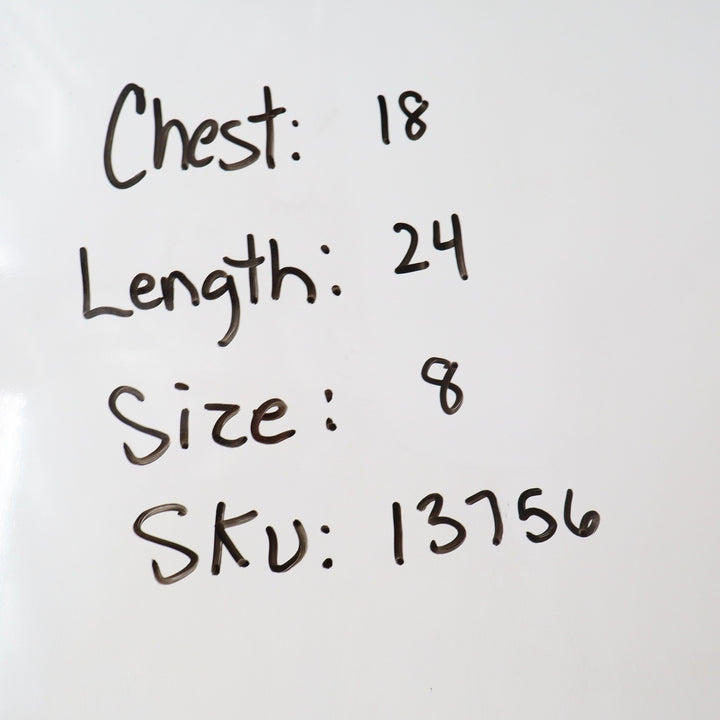 Chest: 18
Length: 24
Size: 8
SKU: 13756